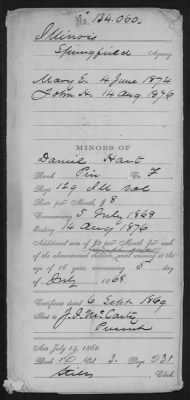 No. 134.060.
Illinois
Springfield Agency
Mary E. 4 June 1874
John H. 14 Aug 1876
MINORS OF
Daniel Hart
Rank Priv Co. F
Regt 129 Ill Vol
Rate per Month, $ 8
Commencing 5 July 1868
Ending 14 Aug 1876
Additional sum of $2 per Month for each
of the abovenamed children, until arriving at the
age of 16 years, commencing 5 day
of July 1868
Certificate dated 6 Sept 1869
Sent to J. J. McCarty
Present
Acts July 14, 1862.
Book Vol. 3. Page 231
Clerk.